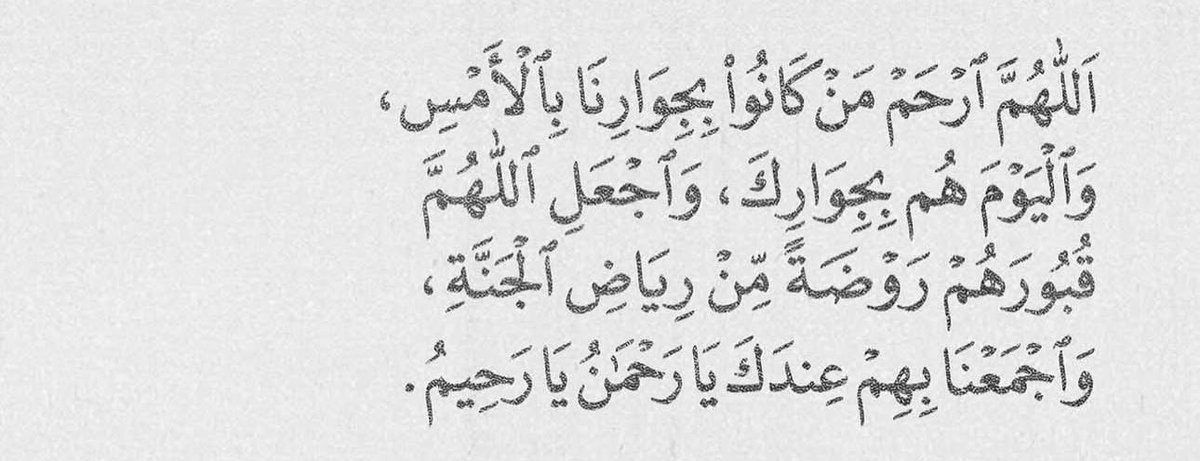 اَللّٰهُمَّ ٱرْحَمْ مَنْ كَانُوا۟ بِجِوَارِنَا بِٱلْأَمْسِ،
وَٱلْيَوْمَ هُم بِجِوَارِكَ، وَٱجْعَلِ ٱللّٰهُمَّ
قُبُورَهُمْ رَوْضَةً مِّنْ رِيَاضِ ٱلْجَنَّةِ،
وَٱجْمَعْنَا بِهِمْ عِندَكَ يَا رَحْمَٰنُ يَا رَحِيمُ.